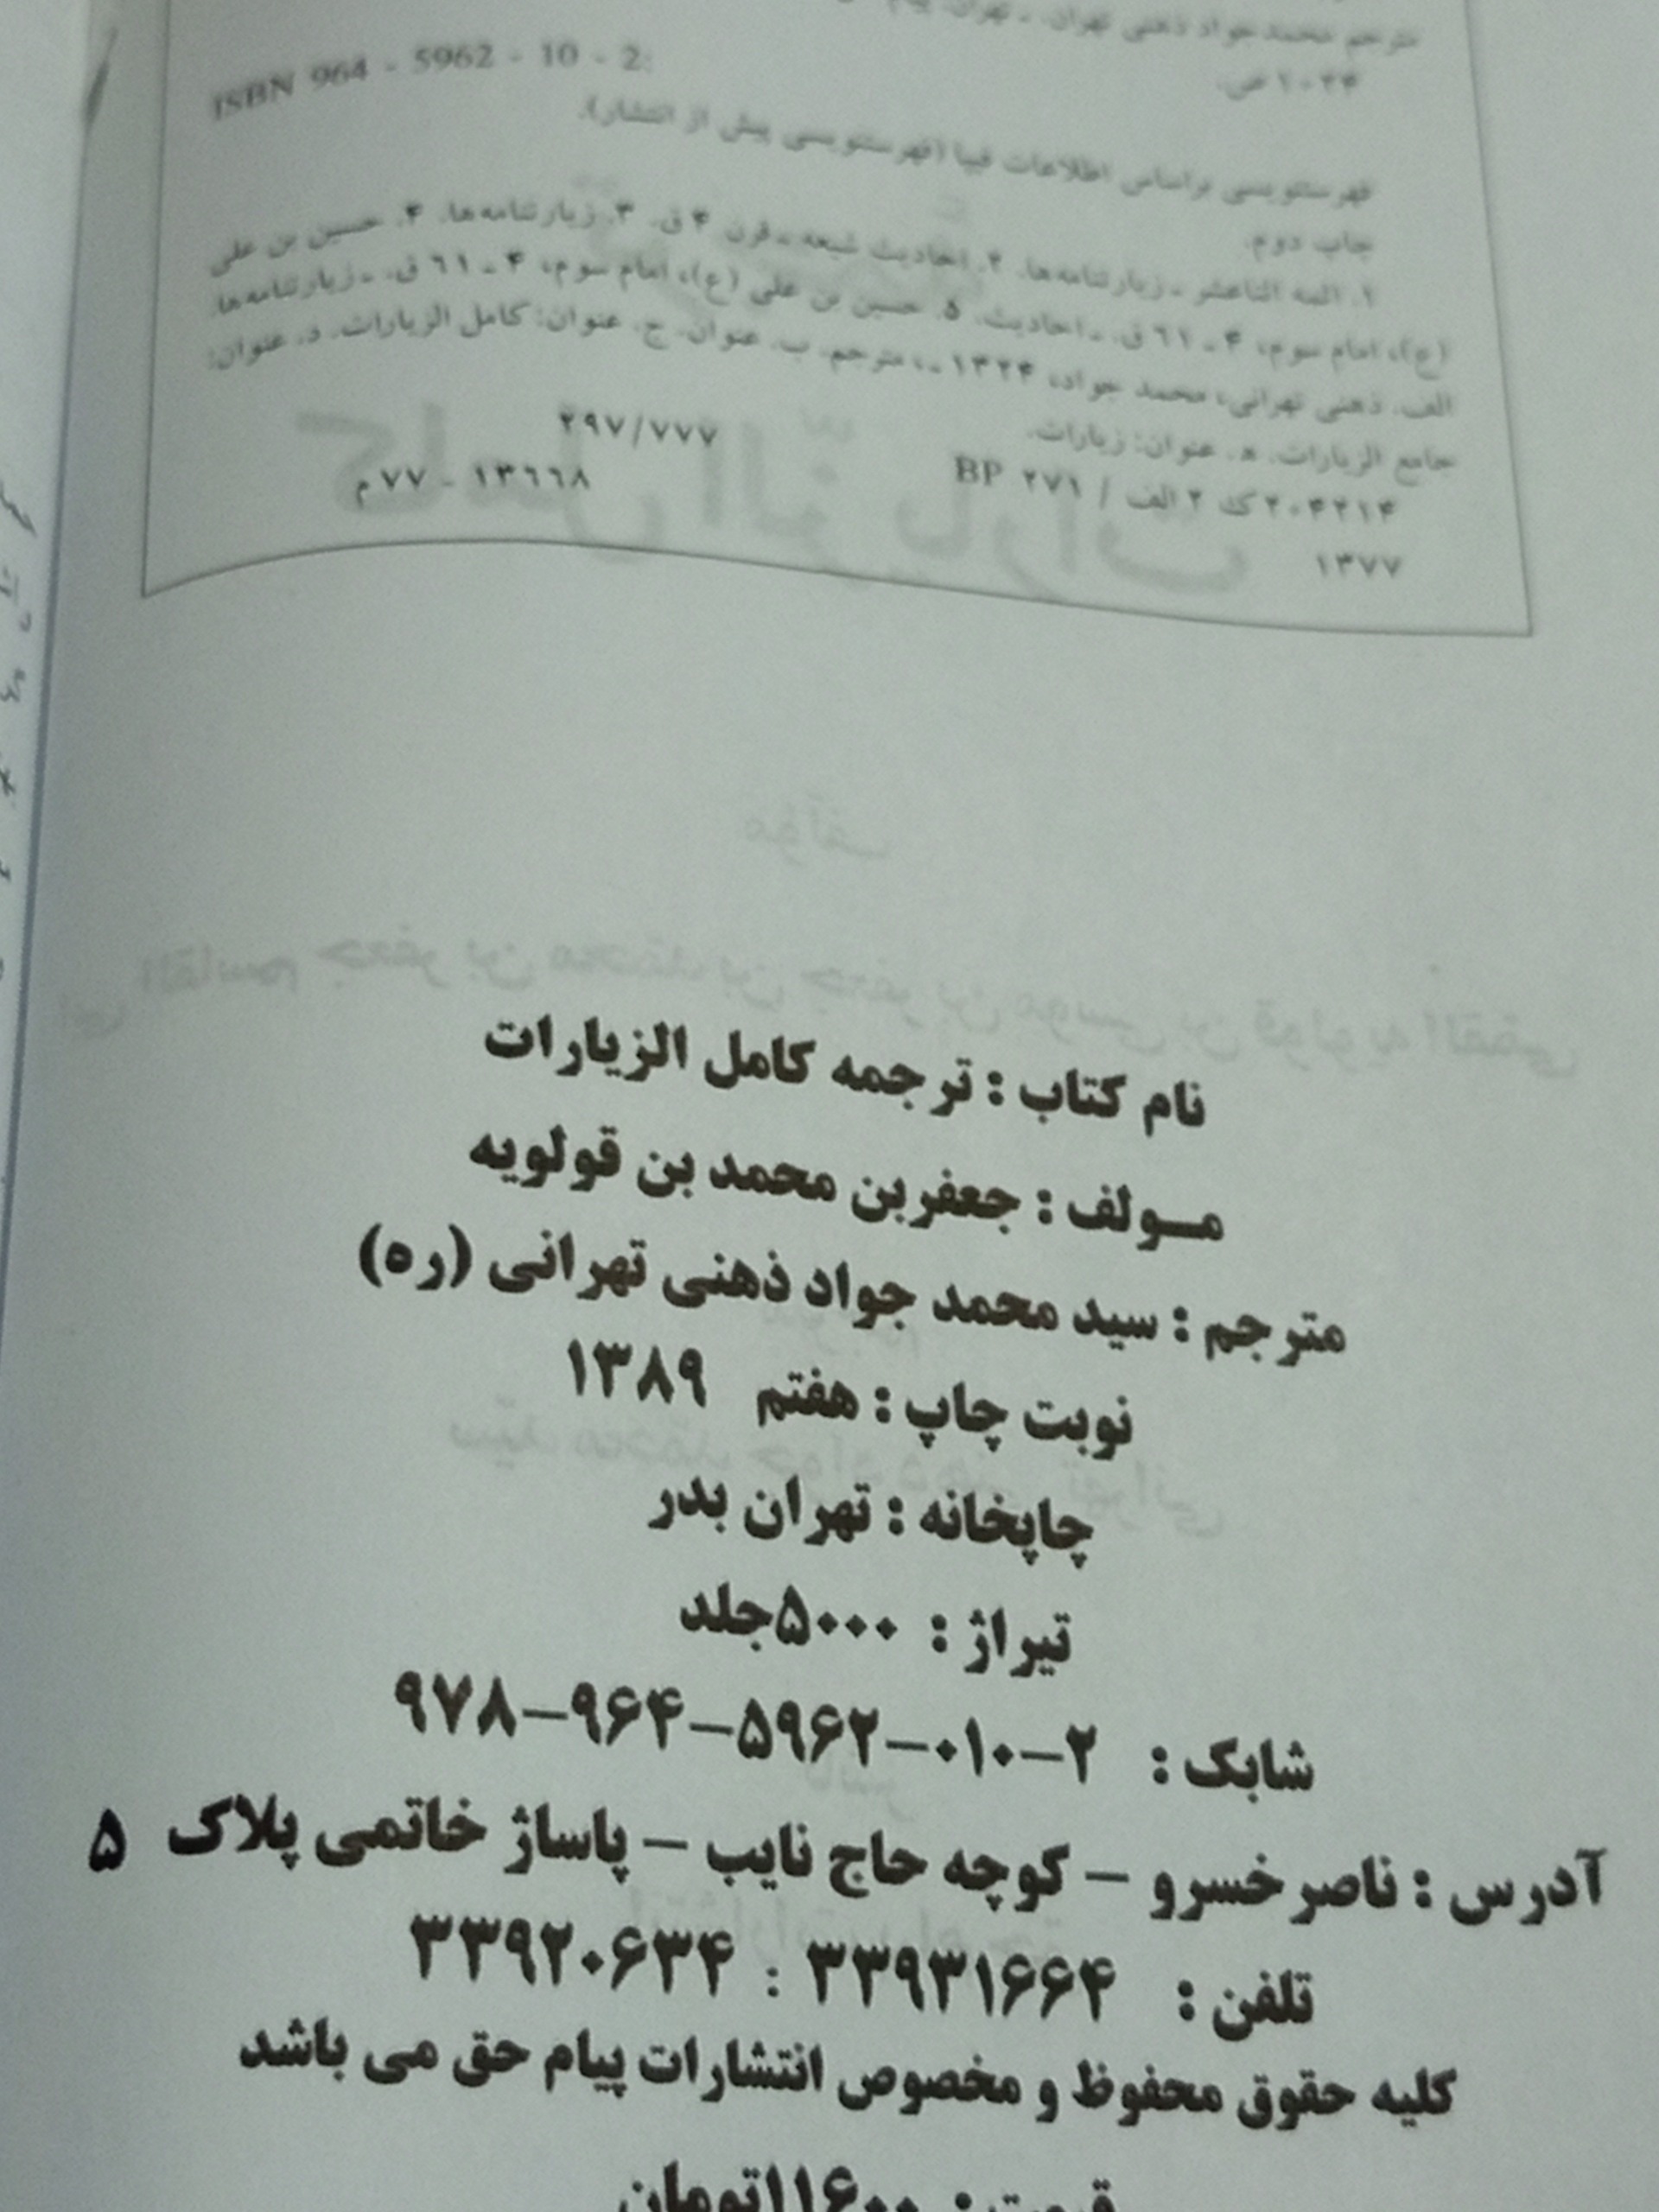 مترجم محمدجواد ذهنی تهران. ـ تهران: پیام
۱۰۲۴ ص.
ISBN 964 - 5962 - 10 - 2:
فهرستنویسی براساس اطلاعات فیپا (فهرستنویسی پیش از انتشار).
چاپ دوم.
۱. ائمه اثناعشر ـ زیارتنامه‌ها. ۲. احادیث شیعه ـ قرن ۴ ق. ۳. زیارتنامه‌ها. ۴. حسین بن علی
(ع)، امام سوم، ۴ ـ ۶۱ ق. ـ احادیث. ۵. حسین بن علی (ع)، امام سوم، ۴ ـ ۶۱ ق. ـ زیارتنامه‌ها.
الف. ذهنی تهرانی، محمد جواد، ۱۳۲۴ ـ ، مترجم. ب. عنوان. ج. عنوان: کامل الزیارات. د. عنوان:
جامع الزیارات. ه. عنوان: زیارات.
۲۹۷/۷۷۷
۲۰۴۲۱۴ ک ۲ الف / ۲۷۱ BP
۱۳۶۶۸ - ۷۷ م
۱۳۷۷
نام کتاب : ترجمه کامل الزیارات
مـولف : جعفربن محمد بن قولویه
مترجم : سید محمد جواد ذهنی تهرانی (ره)
نوبت چاپ : هفتم ۱۳۸۹
چاپخانه : تهران بدر
تیراژ : ۵۰۰۰جلد
شابک : ۲-۰۱۰-۵۹۶۲-۹۶۴-۹۷۸
آدرس : ناصرخسرو - کوچه حاج نایب - پاساژ خاتمی پلاک ۵
تلفن : ۳۳۹۳۱۶۶۴ : ۳۳۹۲۰۶۳۴
کلیه حقوق محفوظ و مخصوص انتشارات پیام حق می باشد
قیمت : ۱۱۶۰۰تومان